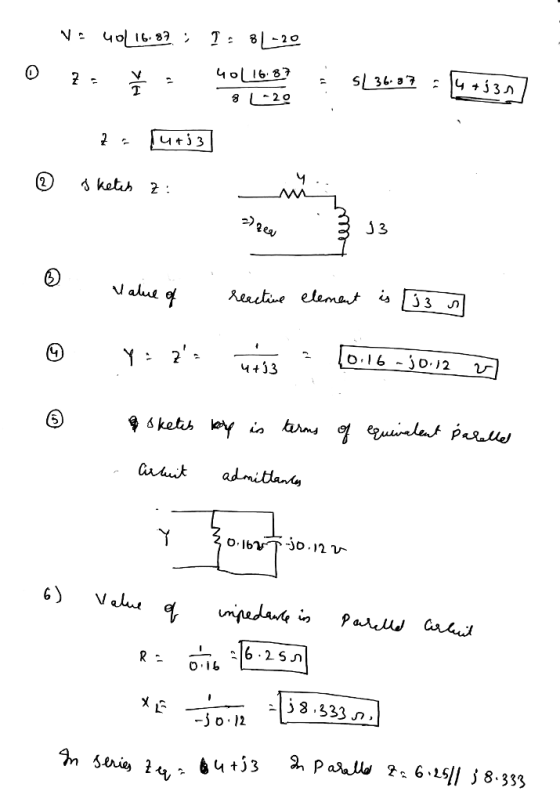 V = 40∠16.87 ; I = 8∠-20
① Z = V/I = 40∠16.87 / 8∠-20 = 5∠36.87 = 4+j3Ω
Z = 4+j3
② Sketch Z :
4
⇒ Zeq
j3
③ Value of reactive element is j3 Ω
④ Y = Z' = 1/4+j3 = 0.16 - j0.12 ℧
⑤ Sketch in terms of equivalent parallel
Circuit admittances
Y 0.16℧ -j0.12 ℧
6) Value of impedance in Parallel Circuit
R = 1/0.16 = 6.25Ω
XL = 1/-j0.12 = j8.333 Ω.
In series Zeq = 4+j3 In Parallel Z = 6.25// j8.333